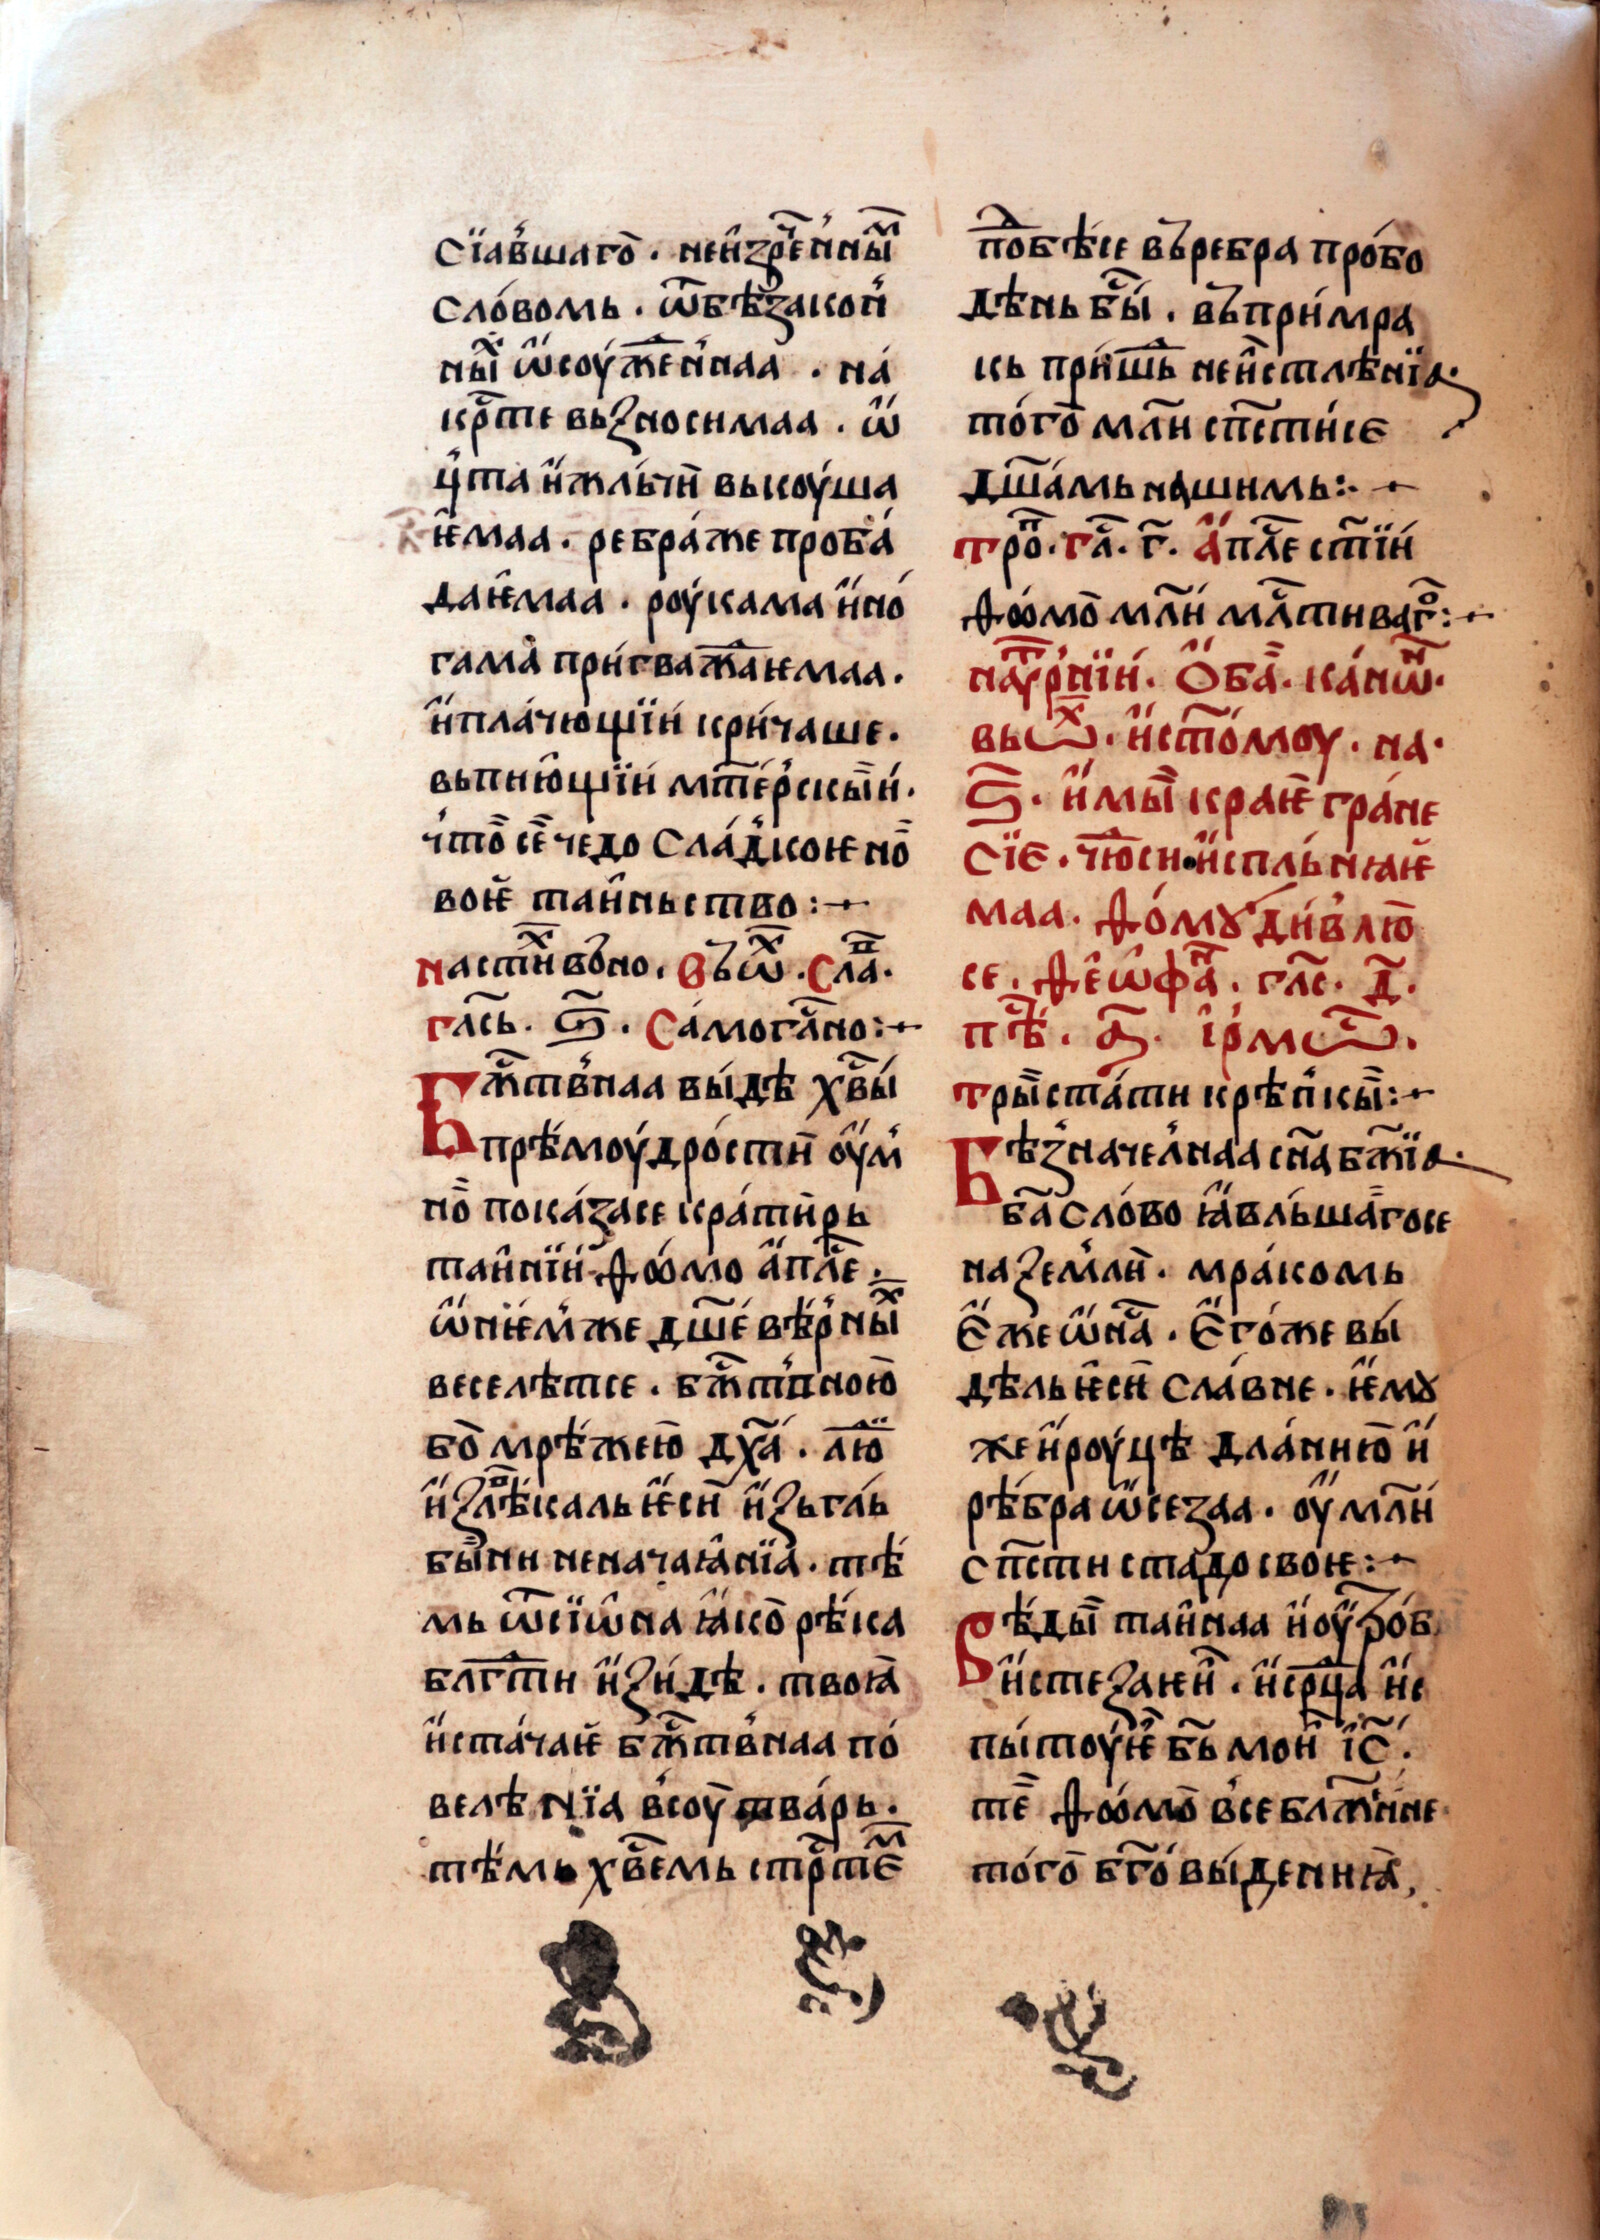 сїав́шаго̀ · неизре́ннꙑⷨ
сло́вомь · ѿбѣзакон́
нꙑⷯ ѡ҆соуж҇ен́наа · на́
крⷭ҇те вьзносимаа · ѡ҆
ц́та и҆жль́чи вькоу́ша
ѥ҆маа · ребра́же проба́
даѥ҆маа · роу́кама и҆но́
гама̀ при́гважⷣаѥмаа ·
и҆пла́чющїи кри́чаше ·
вьпию́щїи мт҃ер́скꙑи ·
ч́то̀ се̏ чедо сла́д́коѥ но̏
воѥ̀ таи́ньство :~
настиⷯвъно · въѡⷯ · слаⷡ ·
гласⷭ҇ь · ѕ҃ · са́могла́сно :~
Бжⷭ҇тв́наа вы́дѣ хв҃ы́
прѣ́моу́дро́сти̏ оу҆м́
но̏ пока́засе кра́ти̏рь
таи́нїи ѳѡмо а҆пⷭ҇ле ·
ѡ҆нѥм́же дш҃е́ вѣр́нꙑⷯ
веселѣтсе · бжⷭ҇тв́ною̀
бо̀ мрѣ́жею̀ дх҃а́ · лю̏ⷣ
и҆звлѣ́каль ѥ҆си̏ и҆зьгль́
бы́ни неначаꙗ́нїа · тѣ́
мь ѿсїѡ́на ꙗ҆ко̀ рѣ́ка
блгⷣти и҆зи́дѣ · твоꙗ̀
и҆ста́чаѥ̀ бжⷭ҇тв́наа по́
велѣнїа в́соу̀ тва́рь ·
тѣ́мь хв҃ѣмь стрⷭ҇теⷨ
подⷣобѣ́се въребра про́бо
дѣнь бꙑ́ⷭ · въпри́мра
кь при́шⷣь неи҆стлѣнїа
то́го̀ мл҃и сп҃сти́се
дш҃а́мь на́шимь :~
троⷫ · гла · г҃ · а҆пⷭ҇ле ст҃їи
ѳѡмо̀ мл҃и млⷭ҇тиваго :~
наоу́трнїи · ѻ҆ба̏ · ка́нѡⷩ ·
вьѡⷯ · и҆ст҃о́моу · на ·
ѕ҃ · и҆мꙑ̏ краѥ̀ гра́не
сїе · чюⷣси и҆спль́нꙗѥ̀
маа · ѳо́мꙋ ди́в́лю̀
се · ѳеѡфаⷩ · глⷭ҇ас · д҃ ·
пѣⷭ · а҃ · і҆р́мѡⷭ ·
трꙑ̏ста́ти крѣп́кꙑ̏ :~
Бѣз́начел́наа сн҃а бж҃їа
ба҃ сло́во ꙗ҆вль́шаго̏се
назем́ли̏ · мра́комь
ѥ҆же ѡ҆нⷭ҇а · ѥ҆го́же вы́
дѣль ѥ҆си̏ сла́вне · ѥ҆мꙋ
же и҆роу́цѣ дла́нию̀ и҆
рѣ́бра ѡ҆сеза́а · оу҆мл҃и́
сп҃сти стадо своѥ :~
Вѣ́дꙑ̏ таи́наа и҆оу҆тро́б
и҆стезаѥи̏ · и҆срⷣца и҆с
пы́тоуѥ҆ бь҃ мои̏ і҆с҃ ·
те̏ ѳѡ́мо̀ в́себлжⷭ҇ен́не
то́го̀ бг҃о́вы́денїꙗ̀ ,